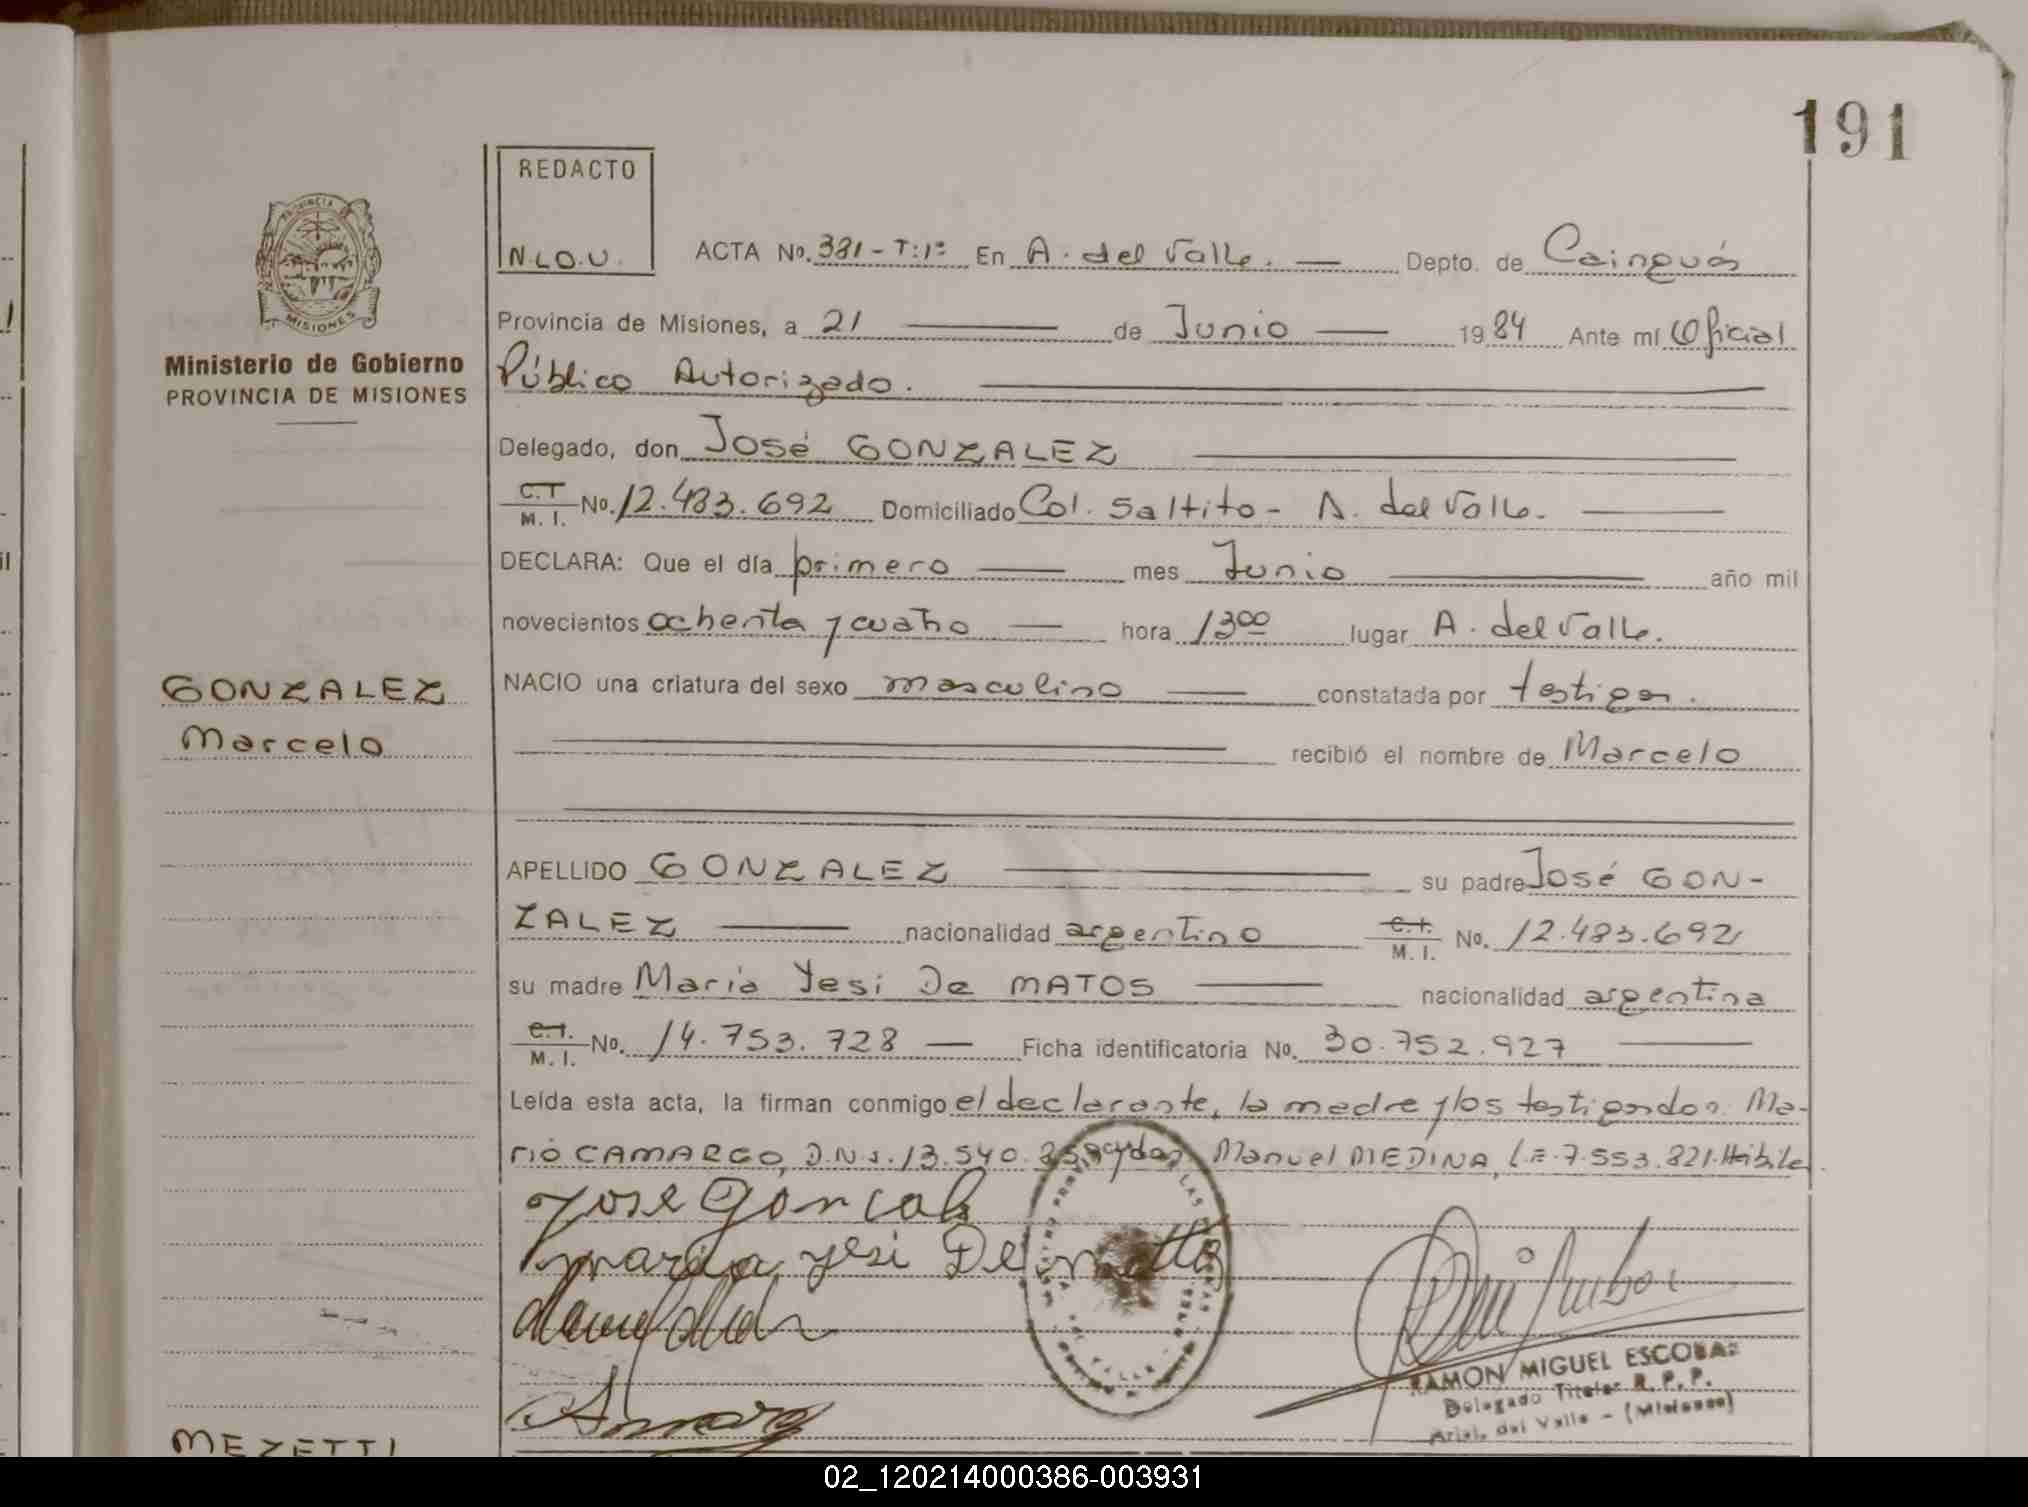 191
REDACTO
N.L.O.U.
PROVINCIA DE
MISIONES
Ministerio de Gobierno
PROVINCIA DE MISIONES
ACTA No. 381 - T: 1º En A. del Valle. — Depto. de Cainguás
Provincia de Misiones, a 21 — de Junio — 1984 Ante mí Oficial
Público Autorizado.
Delegado, don José GONZALEZ
C.I. M. I. No. 12.483.692 Domiciliado Col. Saltito - A. del Valle.
DECLARA: Que el día primero — mes Junio — año mil
novecientos ochenta y cuatro — hora 13 00 lugar A. del Valle.
GONZALEZ
Marcelo
NACIO una criatura del sexo masculino — constatada por testigos.
recibió el nombre de Marcelo
APELLIDO GONZALEZ — su padre José GON-
ZALEZ — nacionalidad argentino C.I. M. I. No. 12.483.692
su madre Maria Yesi De MATOS — nacionalidad argentina
C.I. M. I. No. 14.753.728 — Ficha identificatoria No. 30.752.927
Leída esta acta, la firman conmigo el declarante, la madre y los testigos don Ma-
rio CAMARGO, D.N.I. 13.540. y don Manuel MEDINA, L.E. 7.553.821. Hábiles
Jose Goncalz
maria yesi De mattos
RAMON MIGUEL ESCOBAR
Delegado Titular R. P. P.
Arist. del Valle - (Misiones)
MEZETTI
02_120214000386-003931